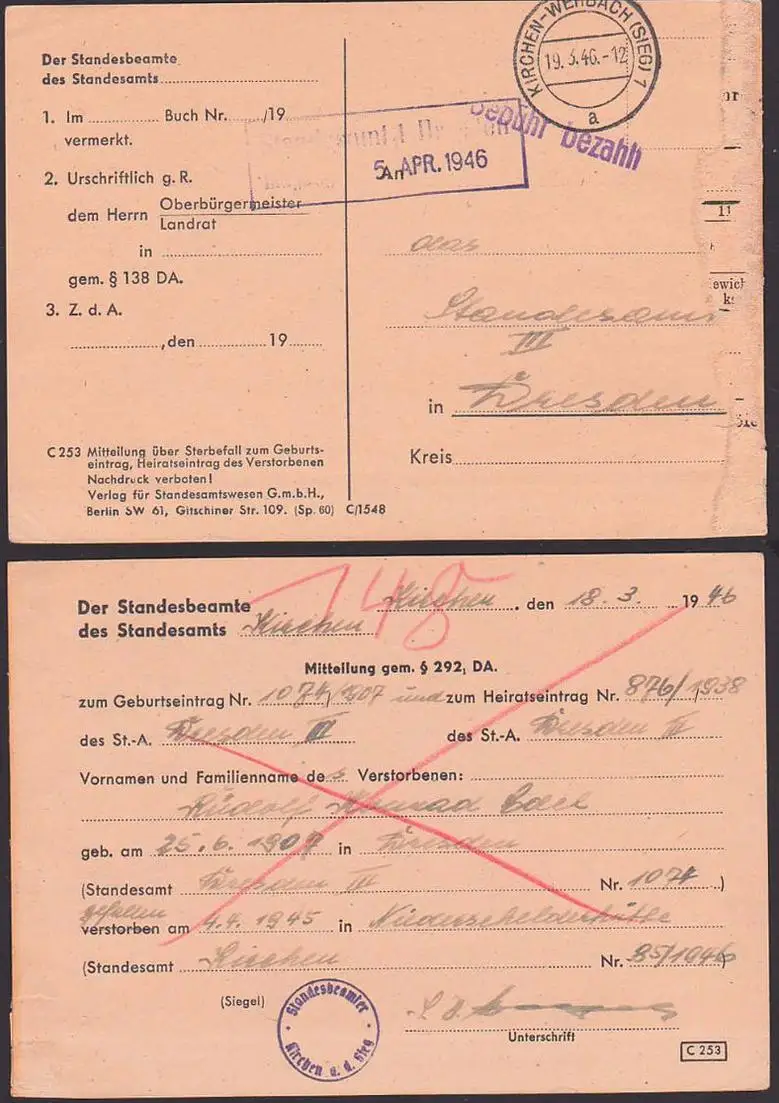 Der Standesbeamte
des Standesamts
1. Im Buch Nr. /19
vermerkt.
2. Urschriftlich g. R.
dem Herrn Oberbürgermeister
Landrat
in
gem. § 138 DA.
3. Z. d. A.
,den 19
C 253 Mitteilung über Sterbefall zum Geburts-
eintrag, Heiratseintrag des Verstorbenen
Nachdruck verboten!
Verlag für Standesamtswesen G.m.b.H.,
Berlin SW 61, Gitschiner Str. 109. (Sp. 60) C/1548
KIRCHEN-WEHBACH (SIEG) 1
19.3.46.-12
a
Gebühr bezahlt
5. APR. 1946
An
das
Standesamt
III
in Dresden
Kreis
11
ewich
148
Der Standesbeamte
des Standesamts Kirchen Kirchen, den 18. 3. 1946
Mitteilung gem. § 292, DA.
zum Geburtseintrag Nr. 1074/1907 und zum Heiratseintrag Nr. 876/1938
des St.-A. Dresden III des St.-A. Dresden
Vornamen und Familienname des Verstorbenen:
Rudolf Konrad Edel
geb. am 25. 6. 1907 in Dresden
(Standesamt Dresden III Nr. 1074)
gefallen
verstorben am 4.4. 1945 in Niederschelderhütte
(Standesamt Kirchen Nr. 85/1946)
(Siegel)
Standesbeamter
Kirchen a. d. Sieg
Unterschrift
C 253